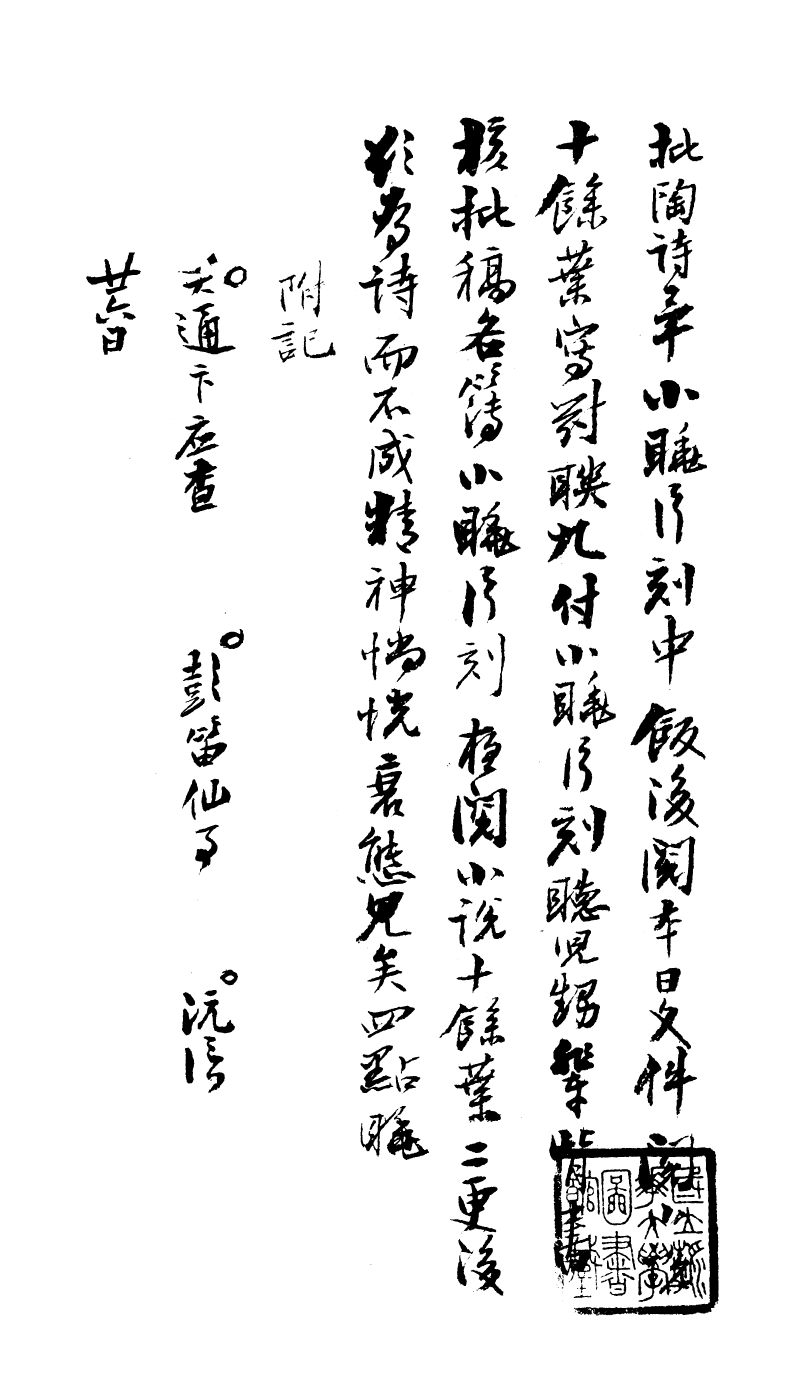 批陶詩畢小睡片刻中飯後閱本日文件閱小
十餘葉寫對聯九付小睡片刻聽兒甥輩背書
核批稿各簿小睡片刻夜閱小說十餘葉二更後
欲為詩而不成精神惝恍衰態見矣四點睡
附記
通卞应查 彭笛仙 沅信
廿六日
圖書